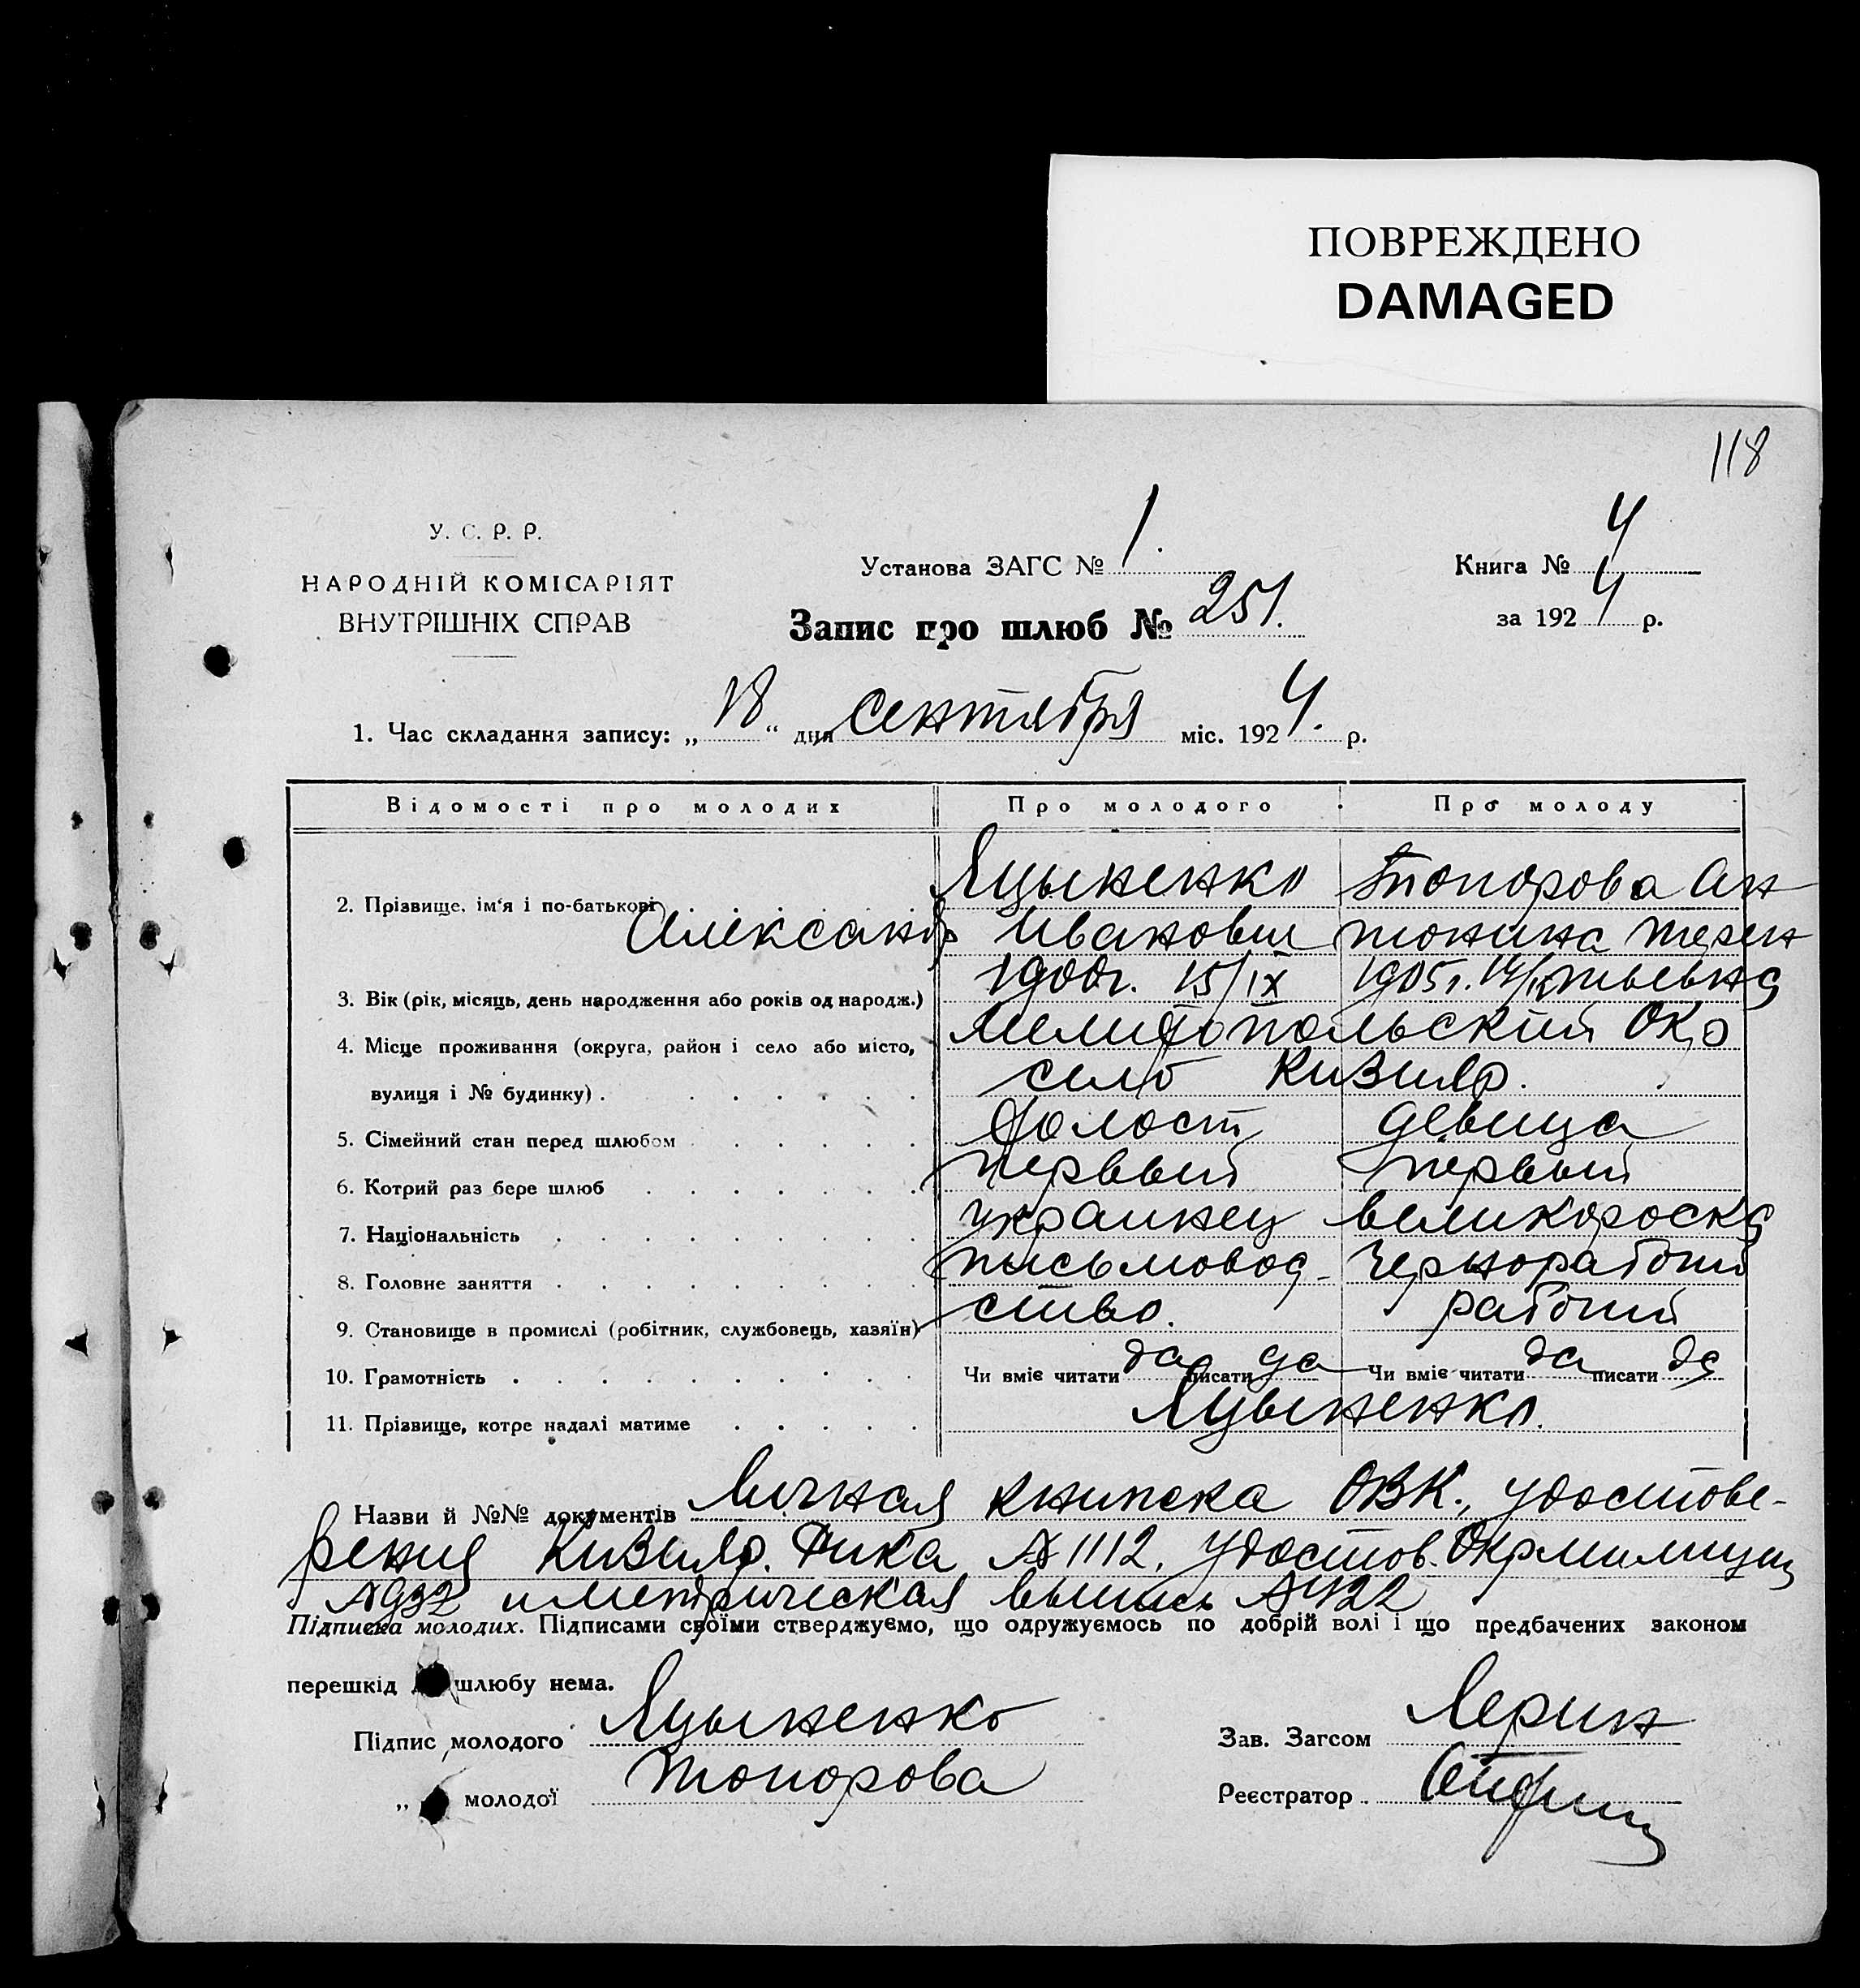 ПОВРЕЖДЕНО
DAMAGED
118
У. С. Р. Р.
НАРОДНІЙ КОМІСАРІЯТ
ВНУТРІШНІХ СПРАВ
Установа ЗАГС № 1.
Книга № 4
Запис про шлюб № 251.
за 1924 р.
1. Час складання запису: „18“ дня сентября міс. 1924. р.
Відомості про молодих Про молодого Про молоду
Яцыненко Топорова Ан
2. Прізвище, ім'я і по-батькові Александр Иванович тонина Терен
3. Вік (рік, місяць, день народження або років од народж.) 1900г. 15/IX 1905г. тьевна
4. Місце проживання (округа, район і село або місто, Мелитопольский Окр
вулиця і № будинку) . село Кизияр.
5. Сімейний стан перед шлюбом холост девица
6. Котрий раз бере шлюб первый первый
7. Національність украинец великороска
8. Головне заняття письмовод- Чернорабочий
9. Становище в промислі (робітник, службовець, хазяїн) ство. рабочий
10. Грамотність Чи вміє читати да писати да Чи вміє читати да писати да
11. Прізвище, котре надалі матиме Яцыненко.
Назви й №№ документів Личная книжка ОВК., удостове-
рения Кизияр. Рика № 1112. Удостов. Окрмилиции
№ 932 и метрическая выпись № 422
Підписка молодих. Підписами своїми стверджуємо, що одружуємось по добрій волі і що предбачених законом
перешкід шлюбу нема.
Підпис молодого Яцыненко
Зав. Загсом
„ молодої Топорова
Реєстратор